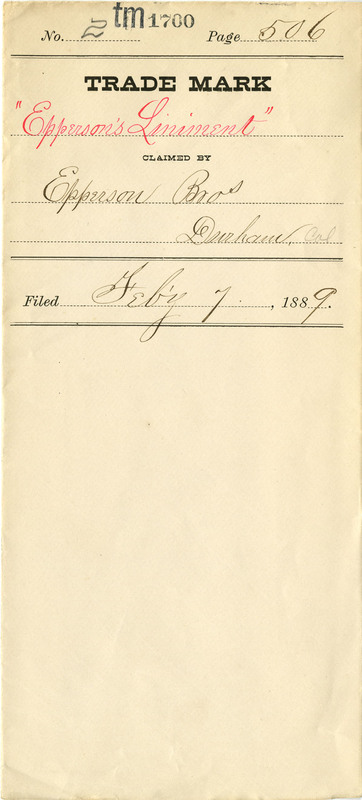 No. 2 tm1700 Page 506
TRADE MARK
"Epperson's Liniment"
CLAIMED BY
Epperson Bros
Durham, Cal
Filed Feb'y 7, 1889.